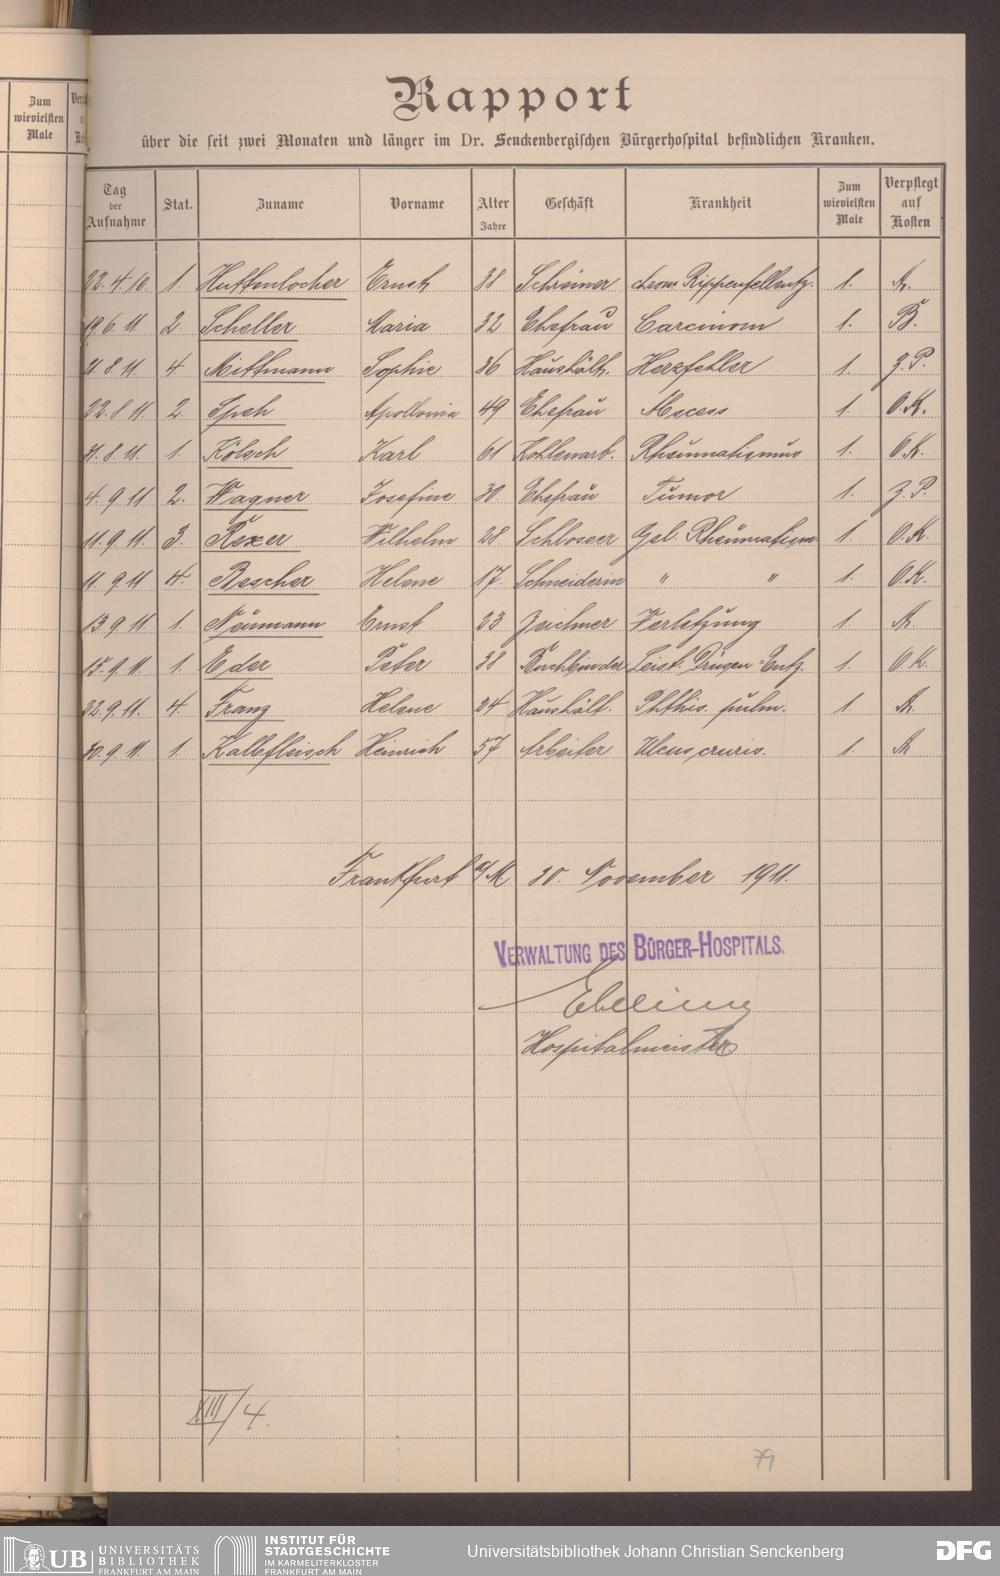 Zum
wievielsten
Male
Rapport
über die seit zwei Monaten und länger im Dr. Senckenbergischen Bürgerhospital befindlichen Kranken.
Tag der Aufnahme Stat. Zuname Vorname Alter Jahre Geschäft Krankheit Zum wievielsten Male Verpflegt auf Kosten
22.4.10 1. Huttenlocher Ernst 38 Schreiner chron. Rippenfellentz. 1. A.
19.6.11. 2. Scheller Maria 32 Ehefrau Carcinom 1. B.
8.11. 4 Mittmann Sophie 36 Haushält. Herzfehler 1. Z.P.
22.8.11. 2. Apollonia 49 Ehefrau Abscess 1. O.K.
8.11. 1. Kölsch Karl 61 Kohlenarb. Rheumatismus 1. O.K.
4.9.11 2. Wagner Josefine 30 Ehefrau Tumor 1. Z.P.
11.9.11 3. Rexer Wilhelm 28 Schlosser Gel. Rheumatism. 1. O.K.
11.9.11 4. Bescher Helene 17. Schneiderin " " 1. O.K.
13.9.11 1. Neumann Ernst 23 Zeichner Verletzung 1 A.
15.9.11 1. Eder Peter 38 Buchbinder Leist. Drüsen-Entz. 1. O.K.
22.9.11. 4. Franz Helene 24 Haushält. Phthis. pulm. 1 A.
30.9.11 1. Kalbfleisch Heinrich 57 Arbeiter Ulcus cruris. 1. A
Frankfurt a/M. 30. November 1911.
VERWALTUNG DES BÜRGER-HOSPITALS.
Ebeling
Hospitalmeister
XIII/4.
79
UB UNIVERSITÄTS
BIBLIOTHEK
FRANKFURT AM MAIN
INSTITUT FÜR
STADTGESCHICHTE
IM KARMELITERKLOSTER
FRANKFURT AM MAIN
Universitätsbibliothek Johann Christian Senckenberg
DFG